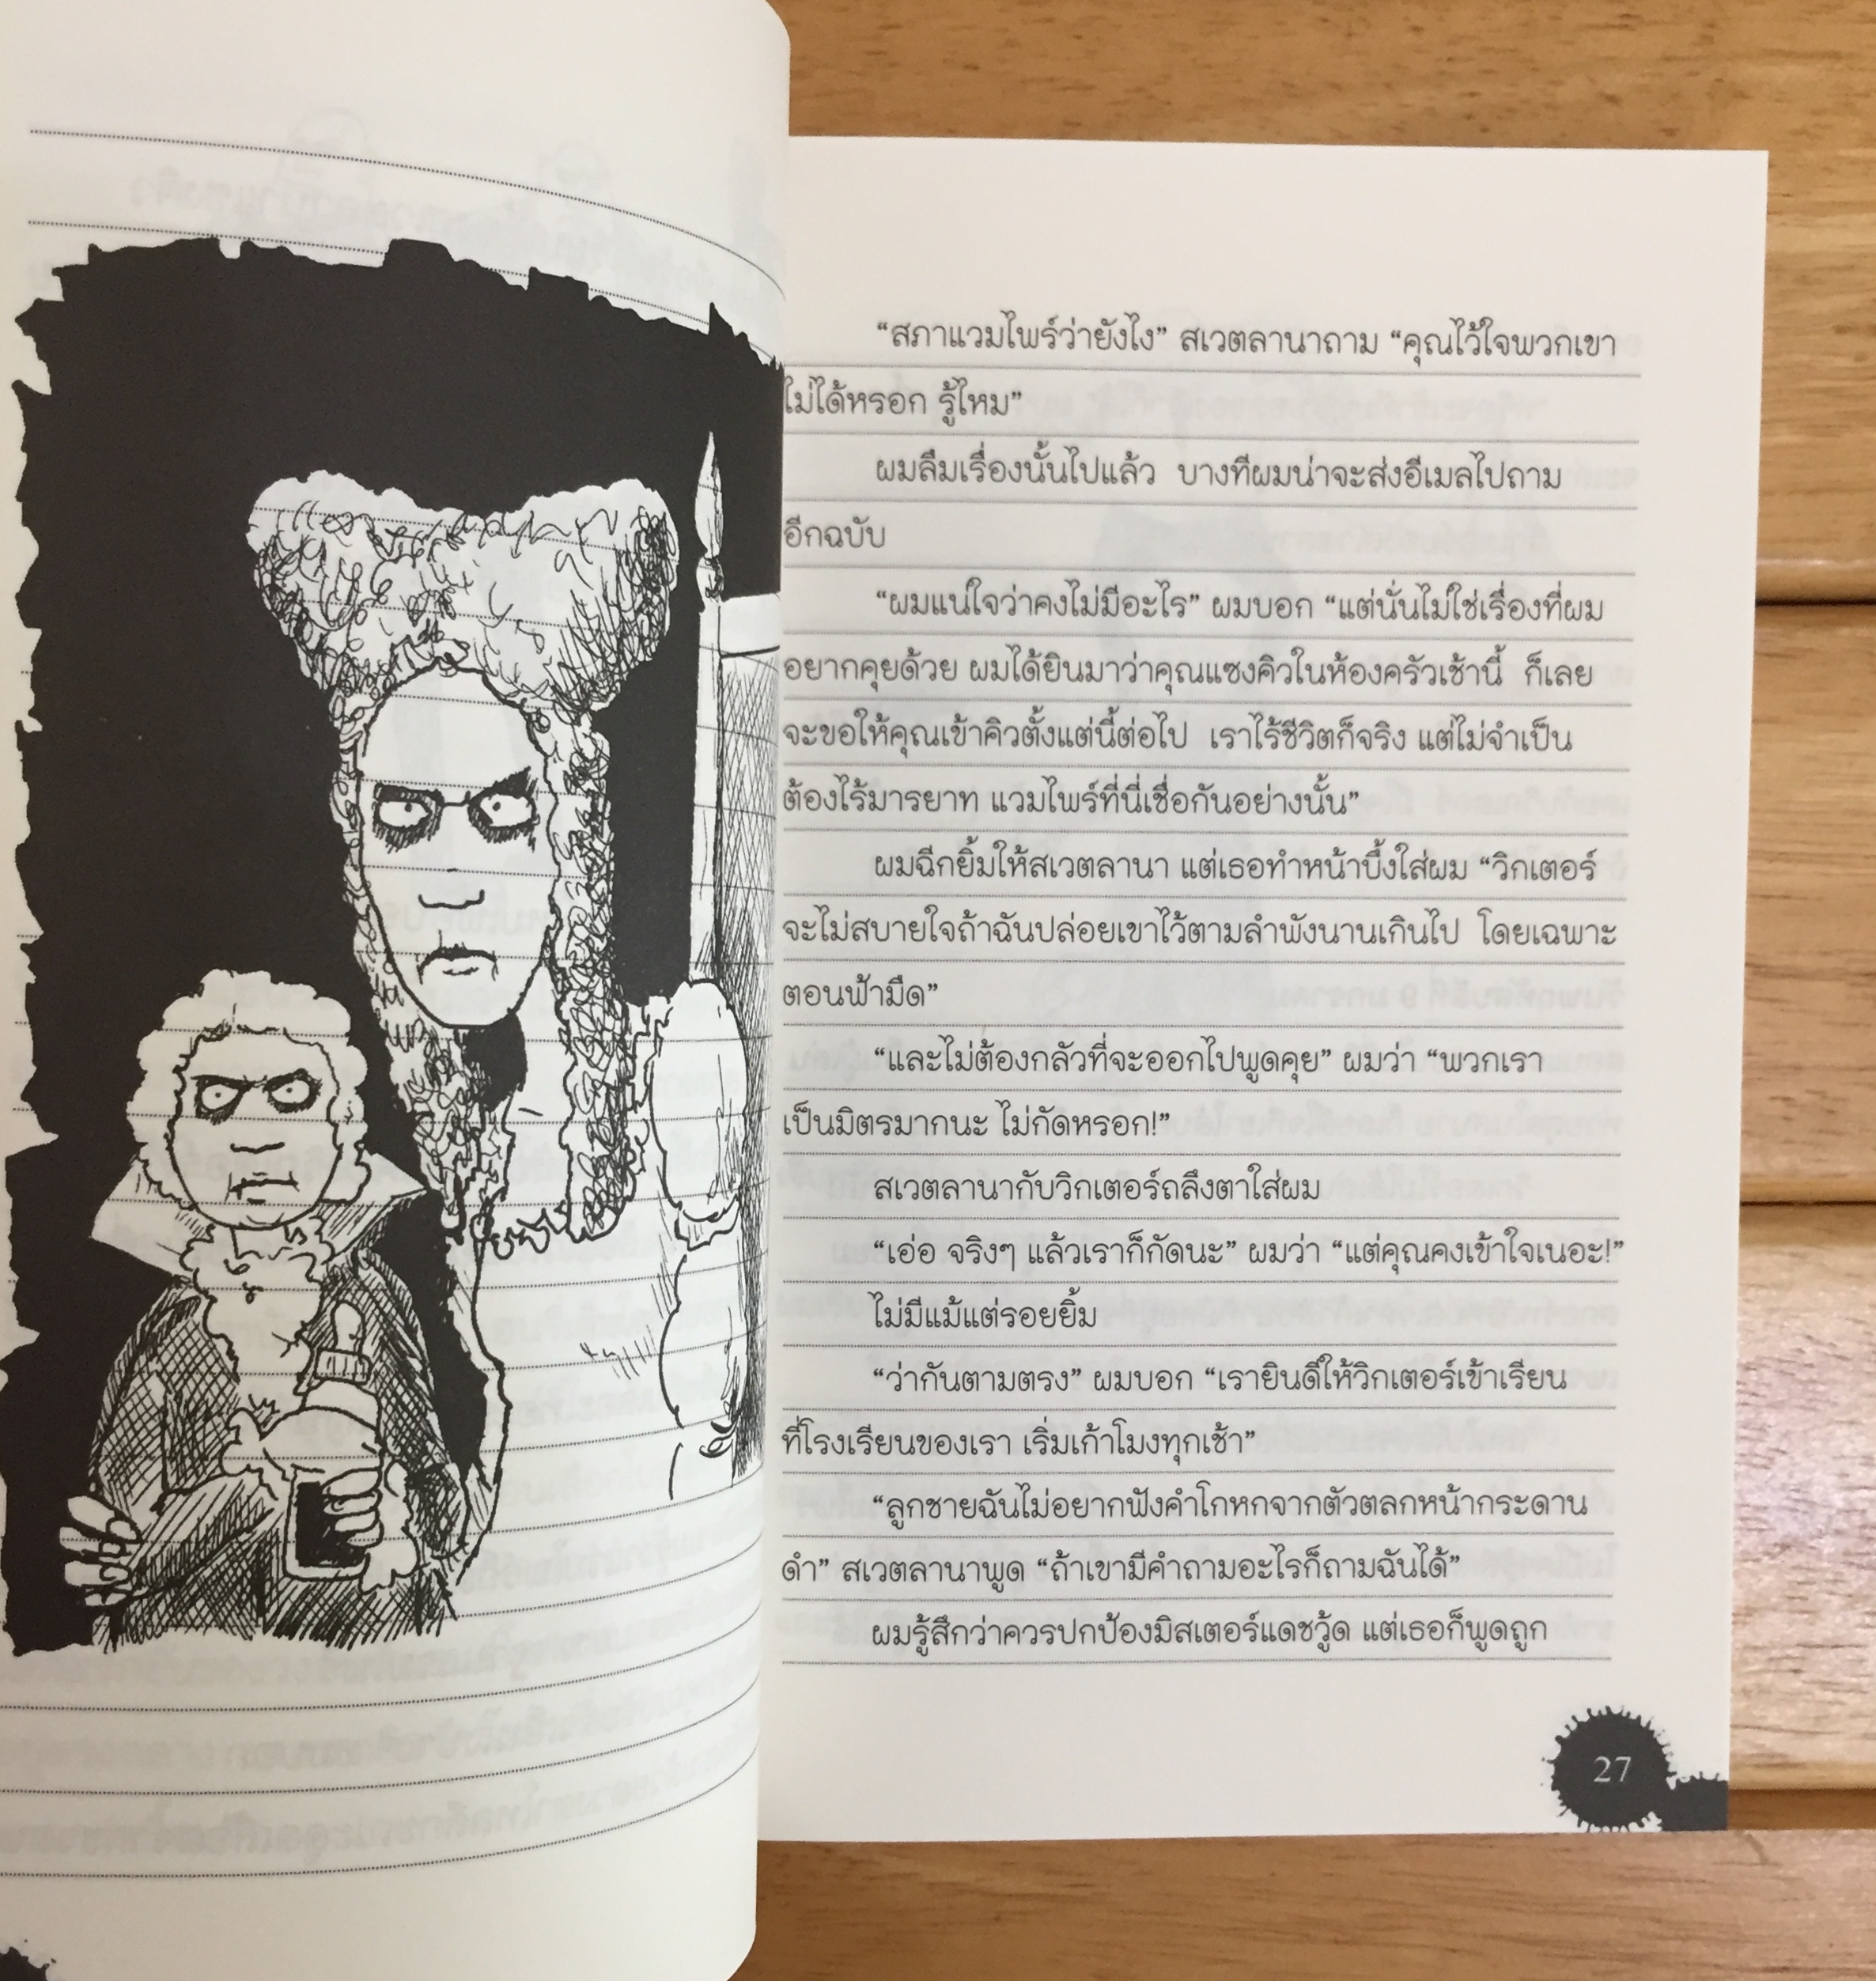 “สภาแวมไพร์ว่ายังไง” สเวตลานาถาม “คุณไว้ใจพวกเขา
ไม่ได้หรอก รู้ไหม”
ผมลืมเรื่องนั้นไปแล้ว บางทีผมน่าจะส่งอีเมลไปถาม
อีกฉบับ
“ผมแน่ใจว่าคงไม่มีอะไร” ผมบอก “แต่นั่นไม่ใช่เรื่องที่ผม
อยากคุยด้วย ผมได้ยินมาว่าคุณแซงคิวในห้องครัวเช้านี้ ก็เลย
จะขอให้คุณเข้าคิวตั้งแต่นี้ต่อไป เราไร้ชีวิตก็จริง แต่ไม่จำเป็น
ต้องไร้มารยาท แวมไพร์ที่นี่เชื่อกันอย่างนั้น”
ผมฉีกยิ้มให้สเวตลานา แต่เธอทำหน้าบึ้งใส่ผม “วิกเตอร์
จะไม่สบายใจถ้าฉันปล่อยเขาไว้ตามลำพังนานเกินไป โดยเฉพาะ
ตอนฟ้ามืด”
“และไม่ต้องกลัวที่จะออกไปพูดคุย” ผมว่า “พวกเรา
เป็นมิตรมากนะ ไม่กัดหรอก!”
สเวตลานากับวิกเตอร์ถลึงตาใส่ผม
“เอ่อ จริงๆ แล้วเราก็กัดนะ” ผมว่า “แต่คุณคงเข้าใจเนอะ!”
ไม่มีแม้แต่รอยยิ้ม
“ว่ากันตามตรง” ผมบอก “เรายินดีให้วิกเตอร์เข้าเรียน
ที่โรงเรียนของเรา เริ่มเก้าโมงทุกเช้า”
“ลูกชายฉันไม่อยากฟังคำโกหกจากตัวตลกหน้ากระดาน
ดำ” สเวตลานาพูด “ถ้าเขามีคำถามอะไรก็ถามฉันได้”
ผมรู้สึกว่าควรปกป้องมิสเตอร์แดชวู้ด แต่เธอก็พูดถูก
27